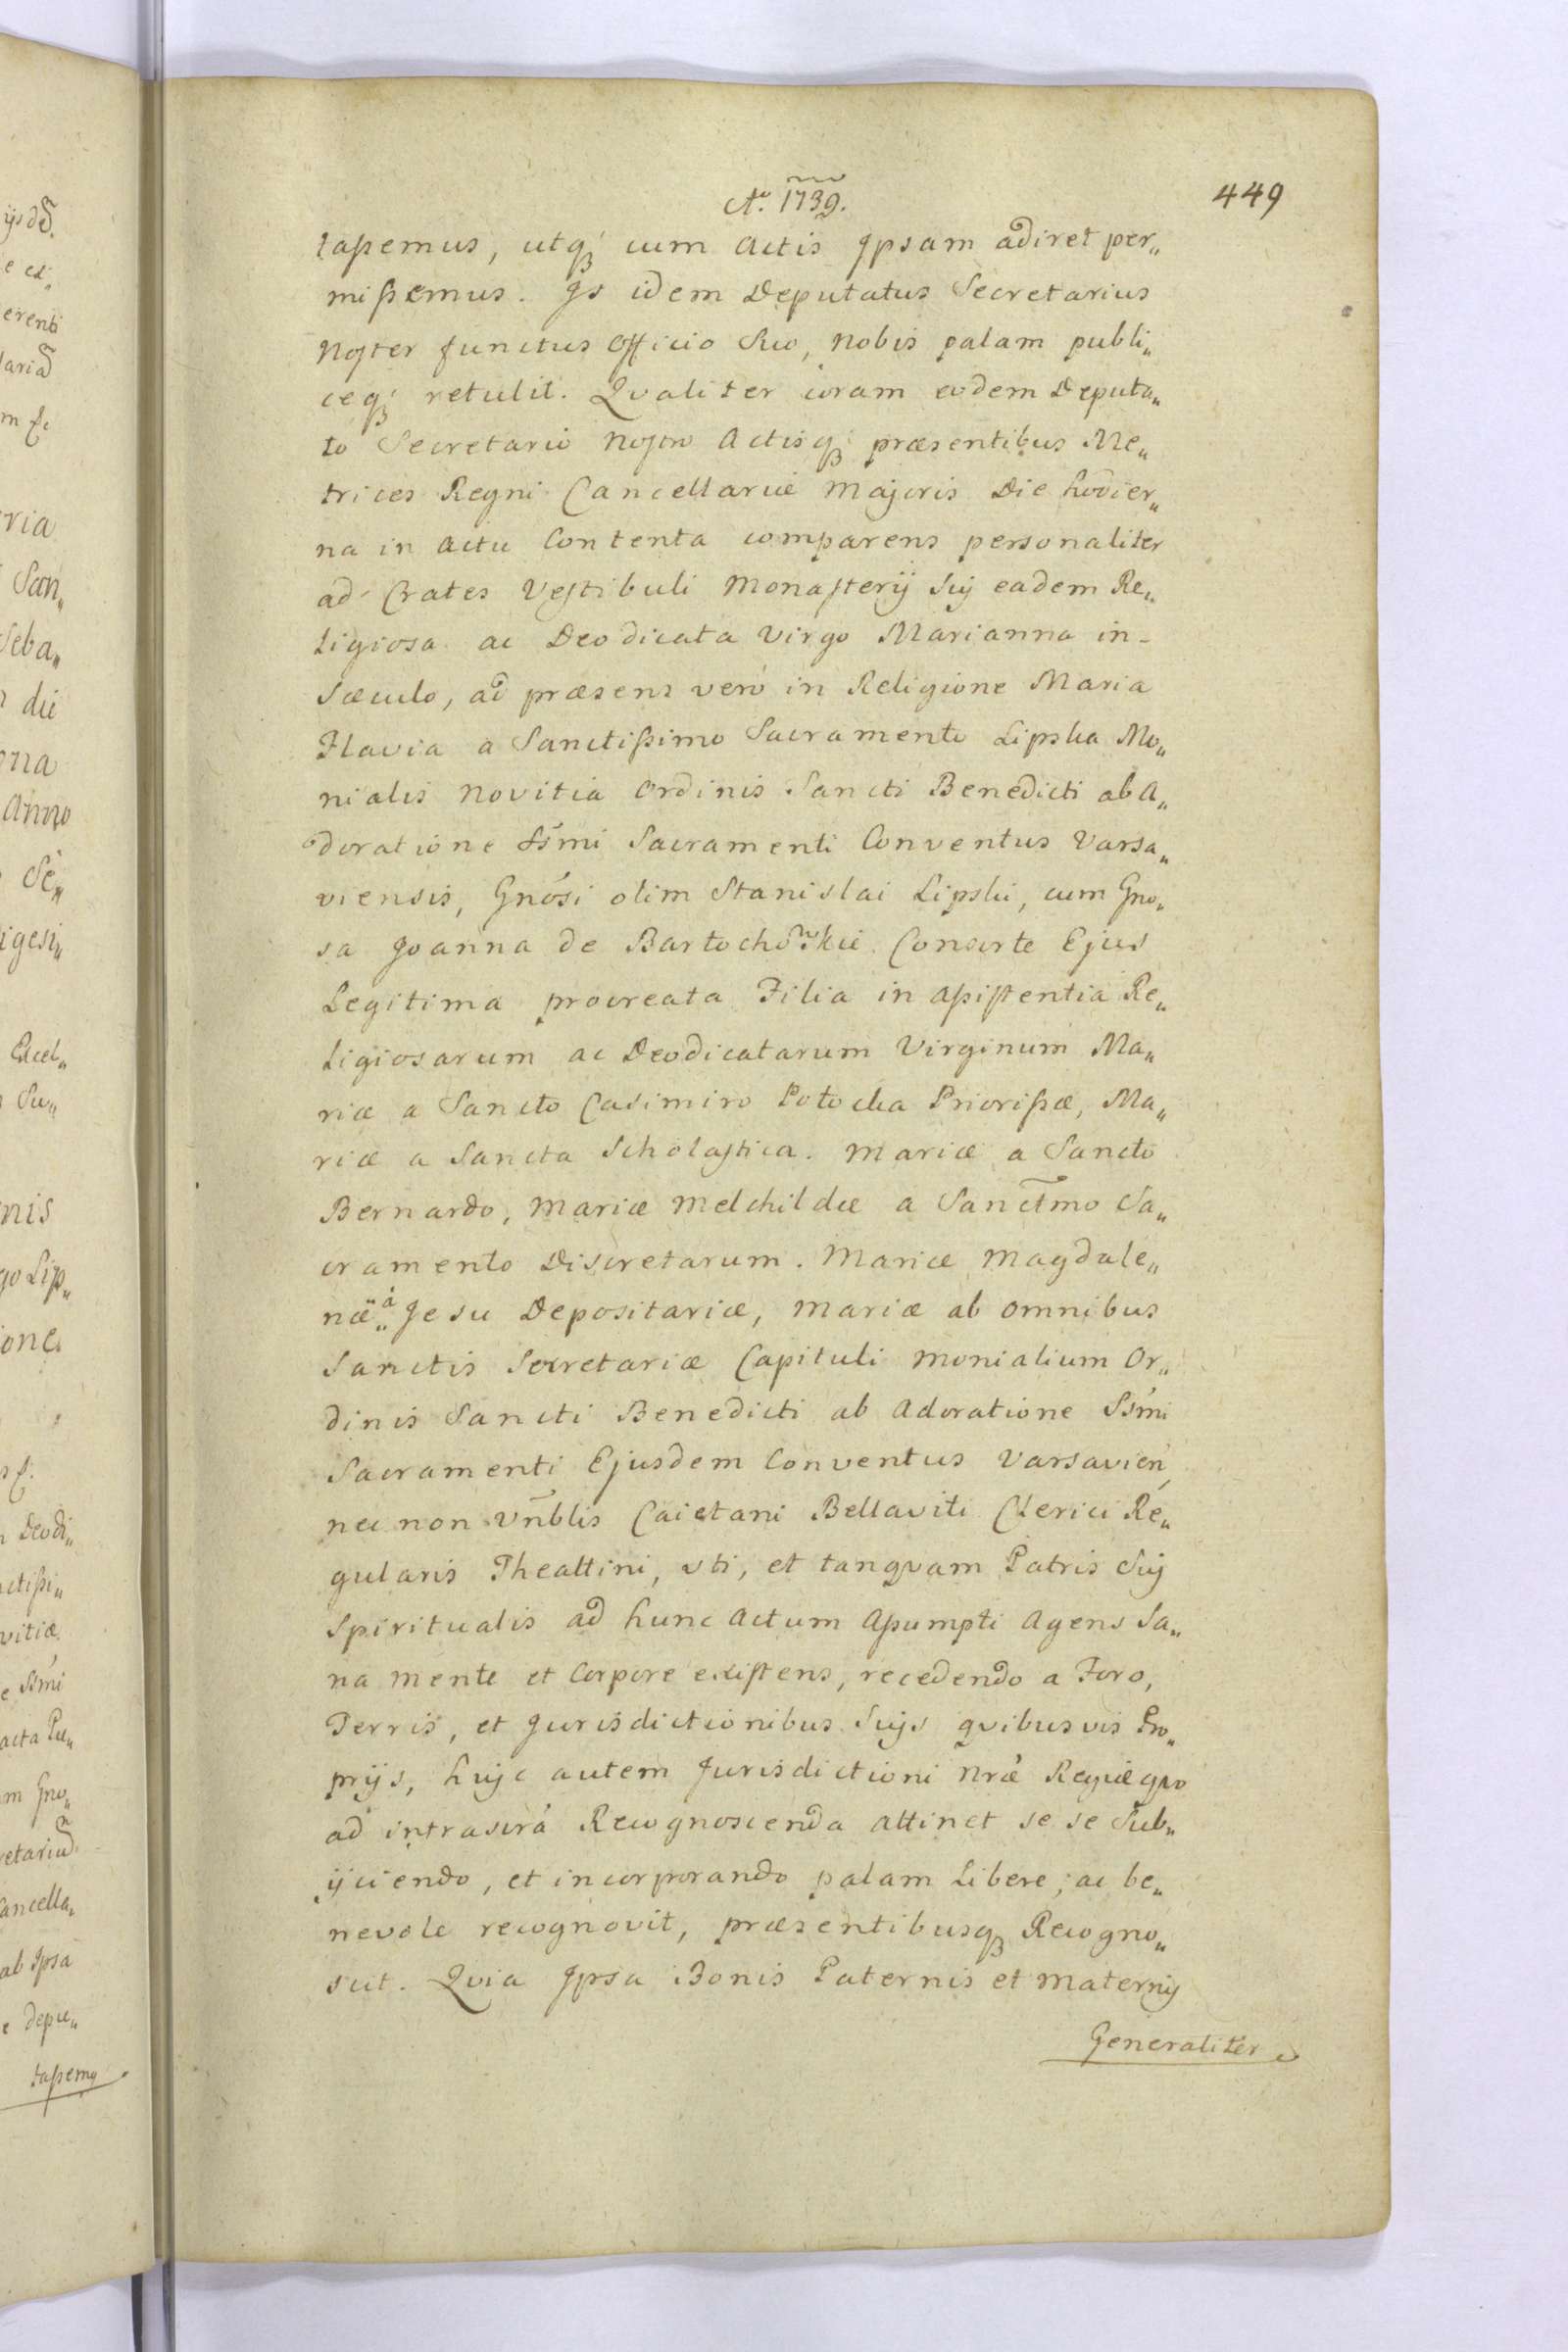 Ao. 1739.
449
tassemus, utq; cum Actis Ipsam adiret per„
missemus. Is idem Deputatus Secretarius
Noster functus Officio Suo, Nobis palam publi„
ceq; retulit. Qvaliter coram eodem Deputa„
to Secretario Nostro Actisq; præsentibus Me„
trices Regni Cancellariæ Majoris Die hodier„
na in actu Contenta comparens personaliter
ad Crates Vestibuli Monasterij Sui eadem Re„
Ligiosa ac Deodicata Virgo Marianna in-
Sæculo, ad præsens verò in Religione Maria
Flavia a Sanctissimo Sacramento Lipska Mo„
nialis Novitia Ordinis Sancti Benedicti ab A„
doratione Ssmi Sacramenti Conventus Varsa„
viensis, Gnosi olim Stanislai Lipski, cum Gno„
sa Joanna de Bartochowskie Consorte Ejus
Legitima procreata Filia in assistentia Re„
Ligiosarum ac Deodicatarum Virginum Ma„
riæ a Sancto Casimiro Potocka Priorissæ, Ma„
riæ a Sancta Scholastica. Mariæ a Sancto
Bernardo, Mariæ Melchildæ a Sanctmo Sa„
cramento Discretarum. Mariæ Magdale„
næ à Jesu Depositariæ, Mariæ ab omnibus
Sanctis Secretariæ Capituli Monialium Or„
dinis Sancti Benedicti ab Adoratione Ssmi
Sacramenti Ejusdem Conventus Varsavien,
nec non Vnblis Caietani Bellaviti Clerici Re„
gularis Theattini, uti, et tanqvam Patris Sui
Spiritualis ad hunc Actum Assumpti Agens Sa„
na mente et Corpore existens, recedendo a Foro,
Terris, et Jurisdictionibus Suijs qvibusvis Pro„
prijs, huic autem Jurisdictioni Nræ Regiæ qvo
ad intrascra Recognoscenda attinet se se Sub„
ijciendo, et incorporando palam Libere, ac be„
nevole recognovit, præsentibusq; Recogno„
scit. Qvia Ipsa Bonis Paternis et Maternis
Generaliter